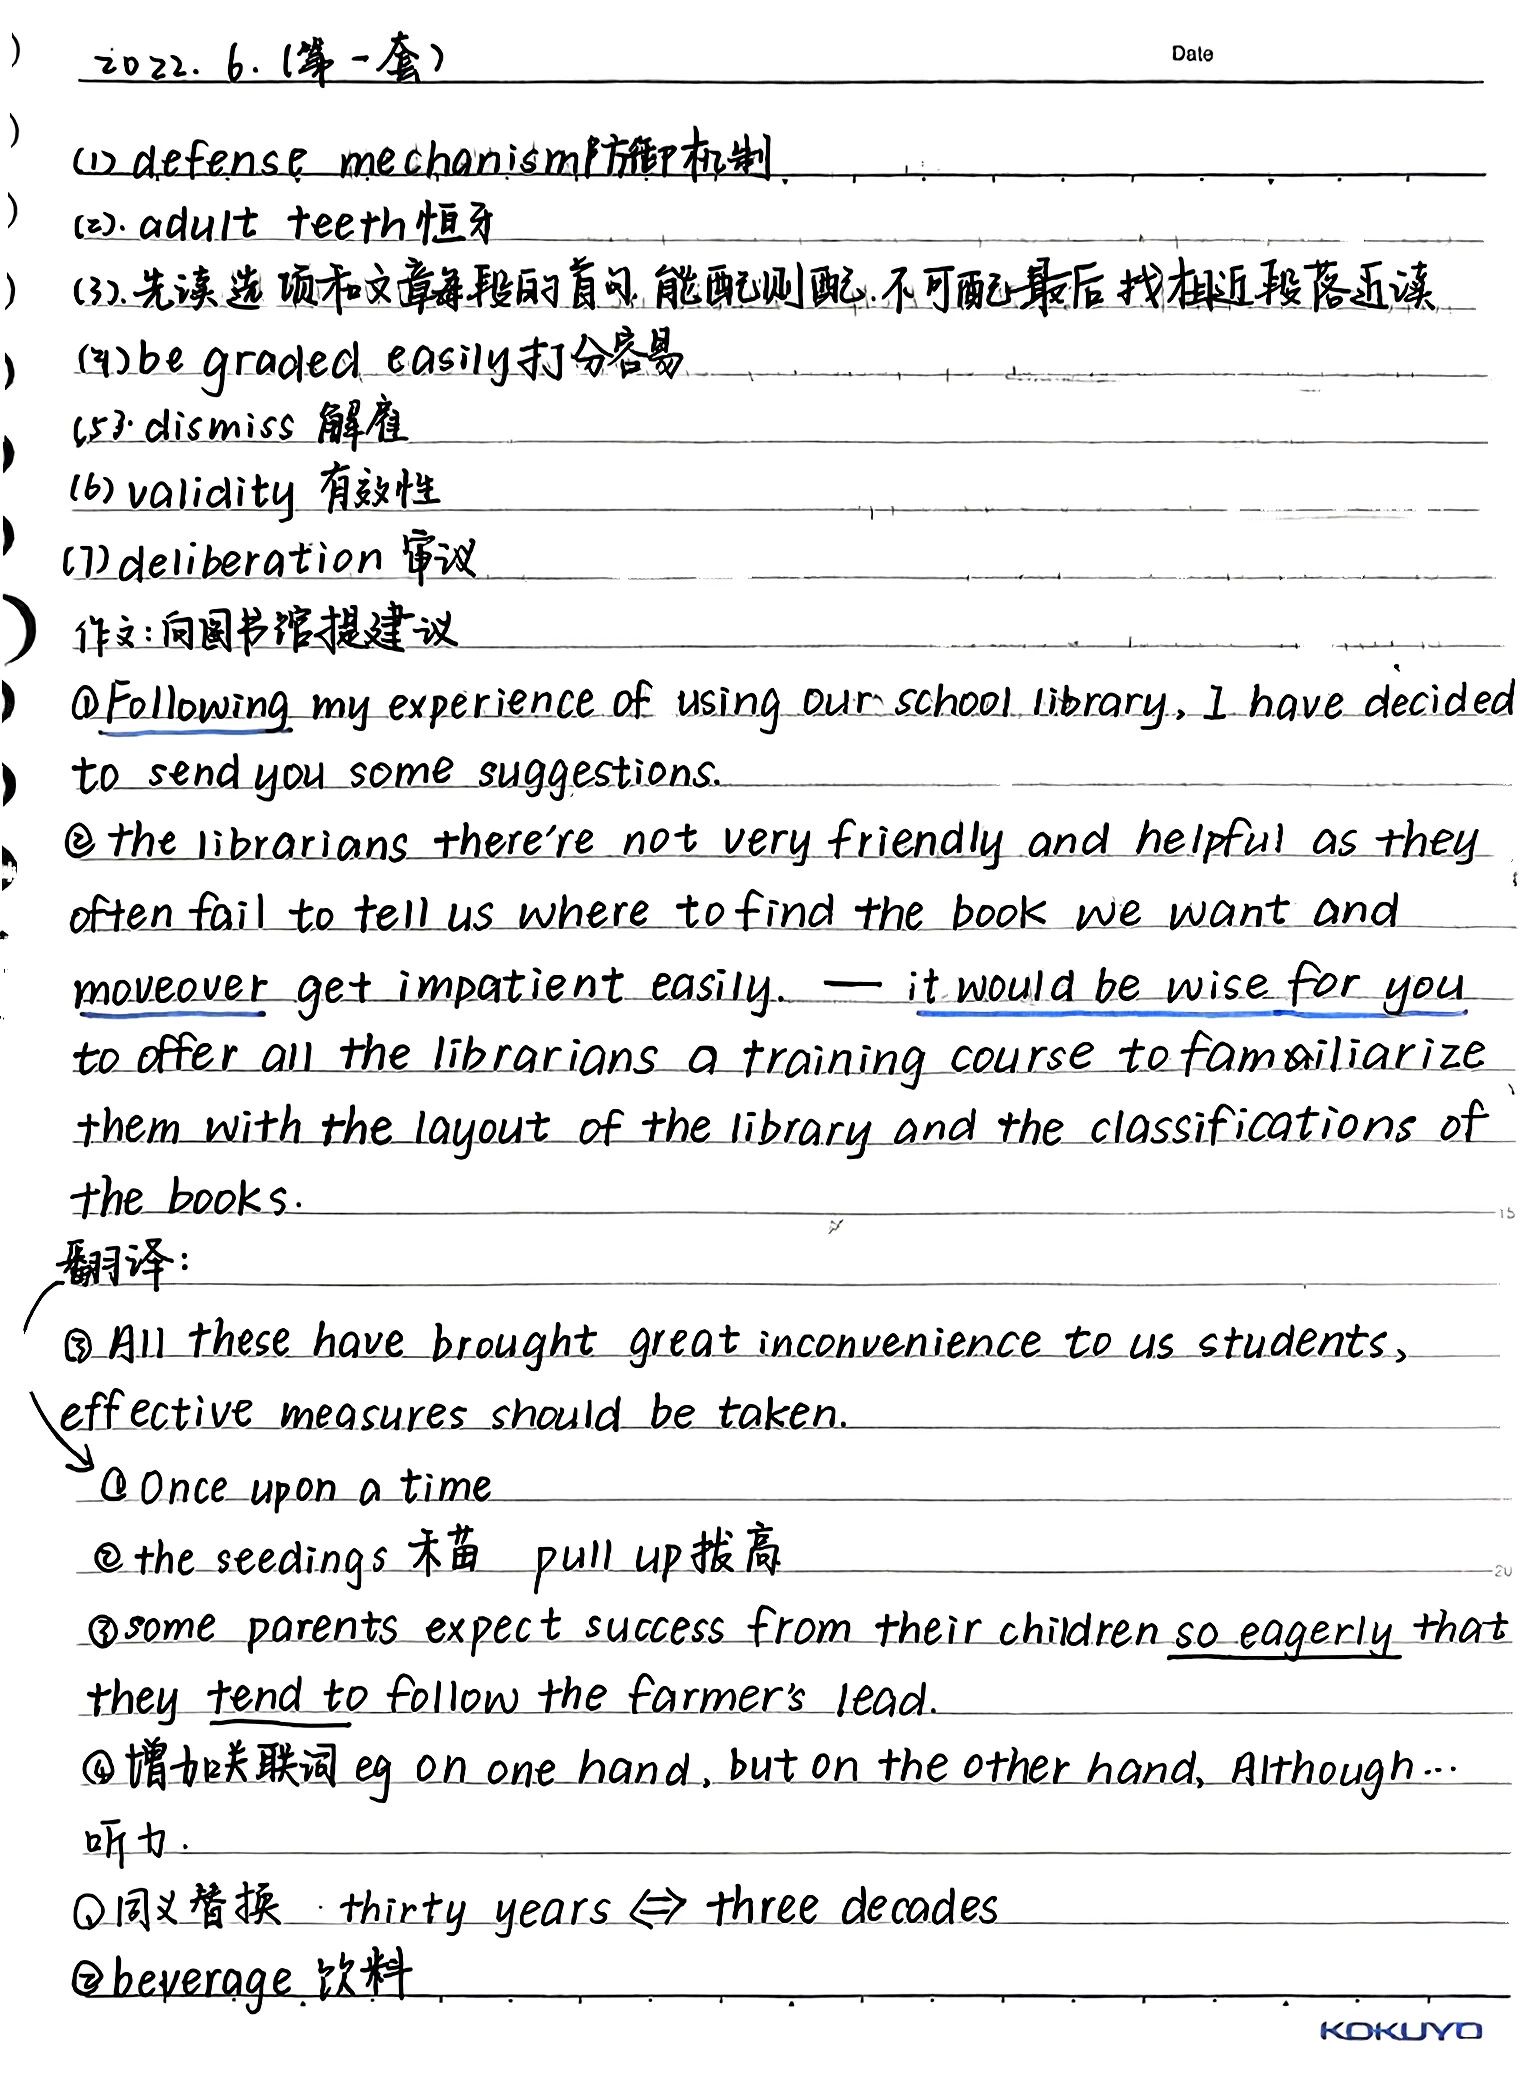 2022.6.(第一套)
Date
(1) defense mechanism 防御机制
(2). adult teeth 恒牙
(3). 先读选项和文章每段的首句, 能配则配. 不可配最后找相近段落近读
(4) be graded easily 打分容易
(5). dismiss 解雇
(6) validity 有效性
(7) deliberation 审议
作文: 向图书馆提建议
① Following my experience of using our school library, I have decided
to send you some suggestions.
② the librarians there're not very friendly and helpful as they
often fail to tell us where to find the book we want and
moveover get impatient easily. — it would be wise for you
to offer all the librarians a training course to famailiarize
them with the layout of the library and the classifications of
the books.
15
翻译:
③ All these have brought great inconvenience to us students,
effective measures should be taken.
① Once upon a time
② the seedings 禾苗 pull up 拔高
20
③ some parents expect success from their children so eagerly that
they tend to follow the farmer's lead.
④ 增加关联词 eg on one hand, but on the other hand, Although...
听力.
① 同义替换 · thirty years ⇔ three decades
② beverage 饮料
KOKUYO